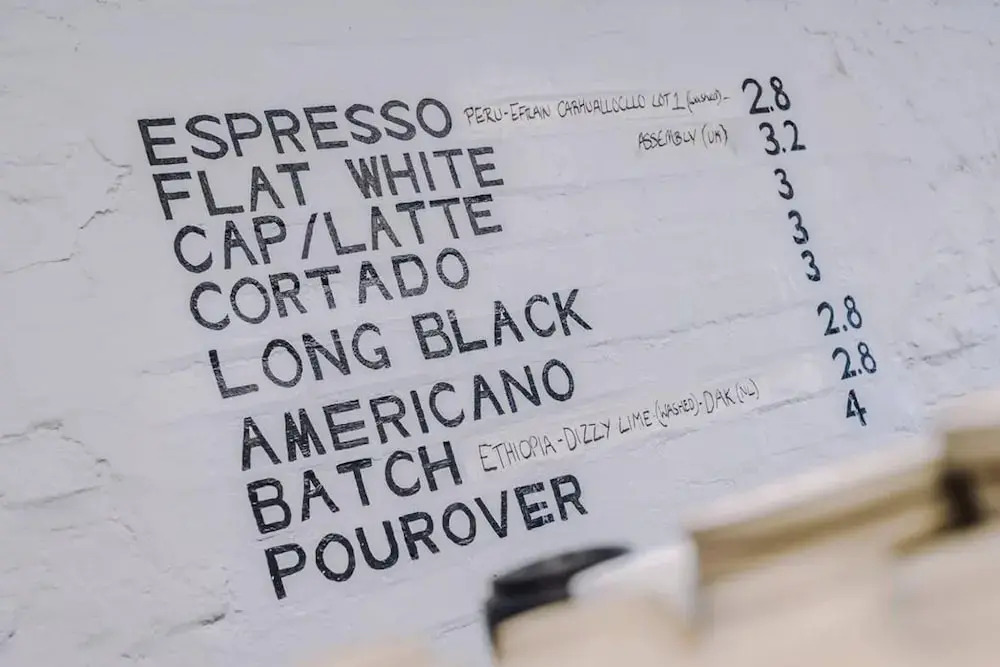 ESPRESSO PERU-EFRAIN CARHUALLOCLLO LOT 1 (washed)- 2.8
FLAT WHITE ASSEMBLY (UK) 3.2
CAP/LATTE 3
CORTADO 3
LONG BLACK 3
AMERICANO 2.8
BATCH ETHIOPIA-DIZZY LIME-(WASHED)-DAK(NL) 2.8
POUROVER 4